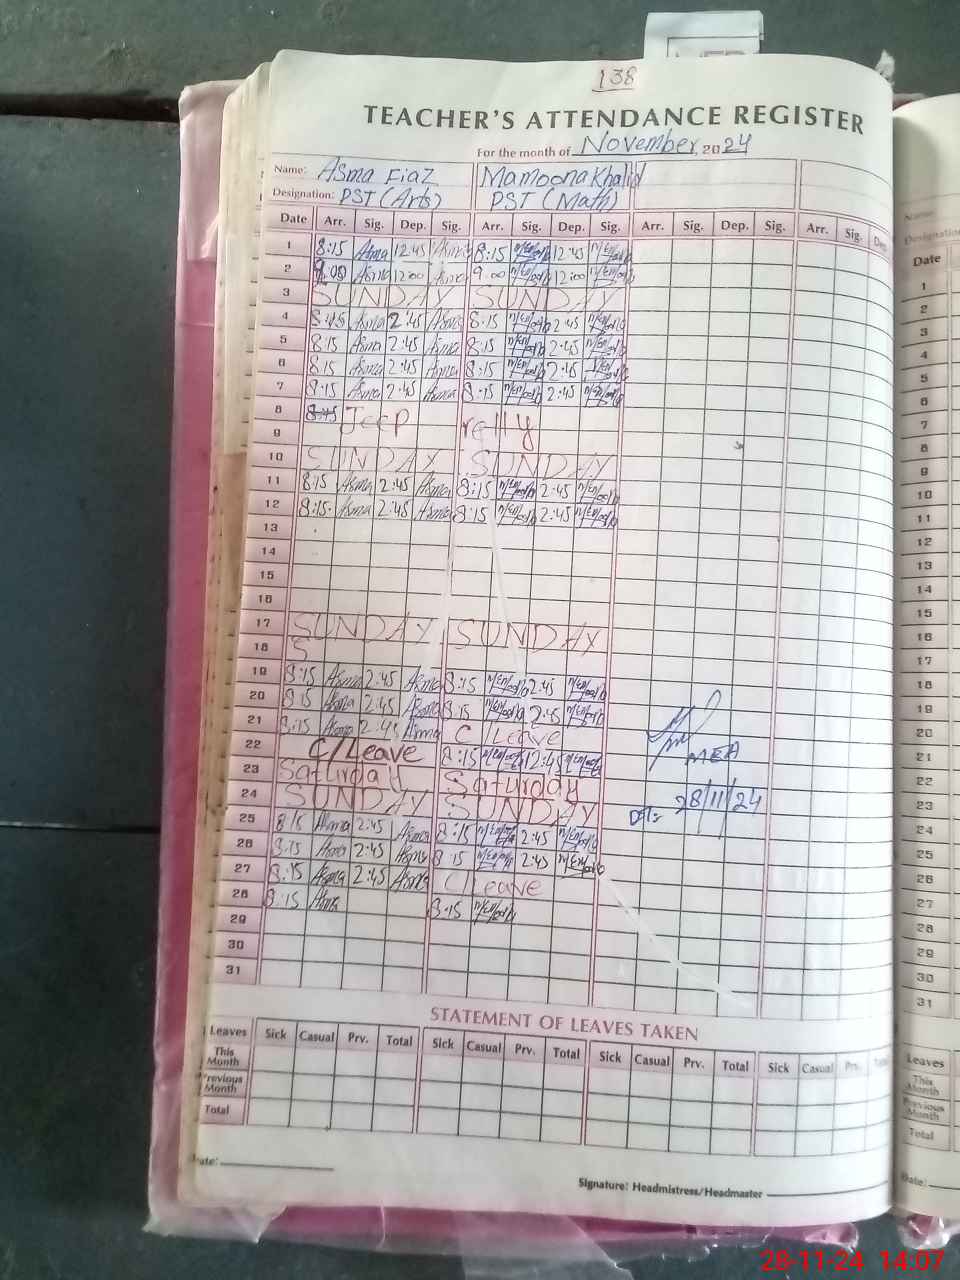 138
TEACHER'S ATTENDANCE REGISTER
For the month of November, 2024
Name: Asma Fiaz Mamoona Khalid
Designation: PST (Arts) PST (Math)
Date Arr. Sig. Dep. Sig. Arr. Sig. Dep. Sig. Arr. Sig. Dep. Sig. Arr. Sig. Dep.
1 8:15 Asma 12:45 Asma 8:15 12:45
2 9:00 Asma 12:00 Asma 9:00 12:00
3 SUNDAY SUNDAY
4 8:15 Asma 2:45 Asma 8:15 2:45
5 8:15 Asma 2:45 Asma 8:15 2:45
6 8:15 Asma 2:45 Asma 8:15 2:45
7 8:15 Asma 2:45 Asma 8:15 2:45
8 Jeep relly
9
10 SUNDAY SUNDAY
11 8:15 Asma 2:45 Asma 8:15 2:45
12 8:15 Asma 2:45 Asma 8:15 2:45
13
14
15
16
17 SUNDAY SUNDAY
18 S
19 8:15 Asma 2:45 Asma 8:15 2:45
20 8:15 Asma 2:45 Asma 8:15 2:45
21 8:15 Asma 2:45 Asma C/Leave
22 C/Leave 8:15 12:45
MEA
23 Saturday Saturday
24 SUNDAY SUNDAY
28/11/24
25 8:15 Asma 2:45 Asma 8:15 2:45
26 8:15 Asma 2:45 Asma 8:15 2:45
27 8:15 Asma 2:45 Asma C/Leave
28 8:15 Asma 8:15
29
30
31
STATEMENT OF LEAVES TAKEN
Leaves Sick Casual Prv. Total Sick Casual Prv. Total Sick Casual Prv. Total Sick Casual Prv.
This Month
Previous Month
Total
Date:
Signature: Headmistress/Headmaster
Date
1
2
3
4
5
6
7
8
9
10
11
12
13
14
15
16
17
18
19
20
21
22
23
24
25
26
27
28
29
30
31
Leaves
This Month
Previous Month
Total
Date:
28-11-24 14:07